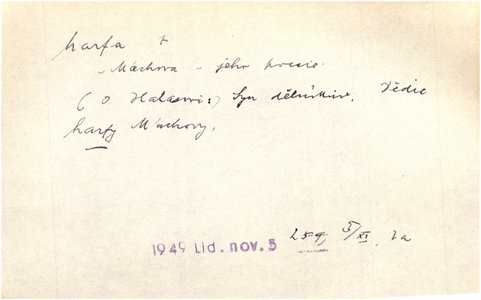 harfa +
„Máchova – jeho poesie.
(O Halasovi:) Syn dělníkův. Dědic
harfy Máchovy.
1949 Lid. nov. 5 259, 5/XI, 2a